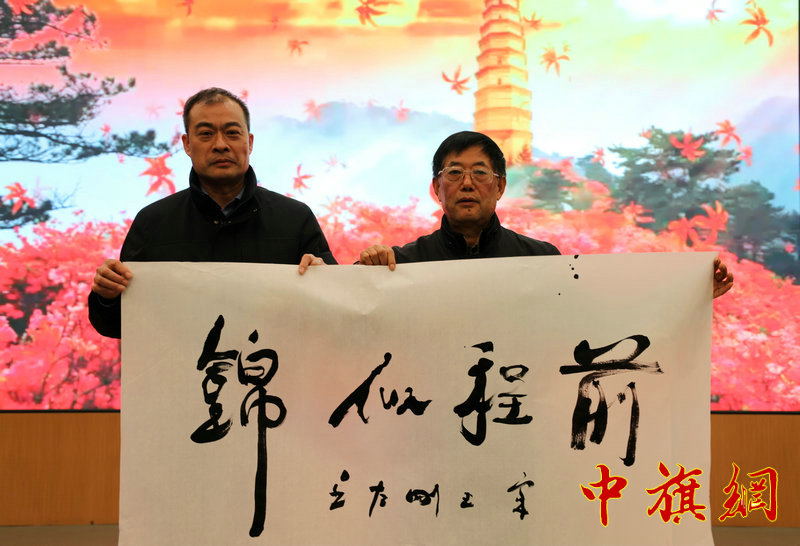 前程似錦
中旗網